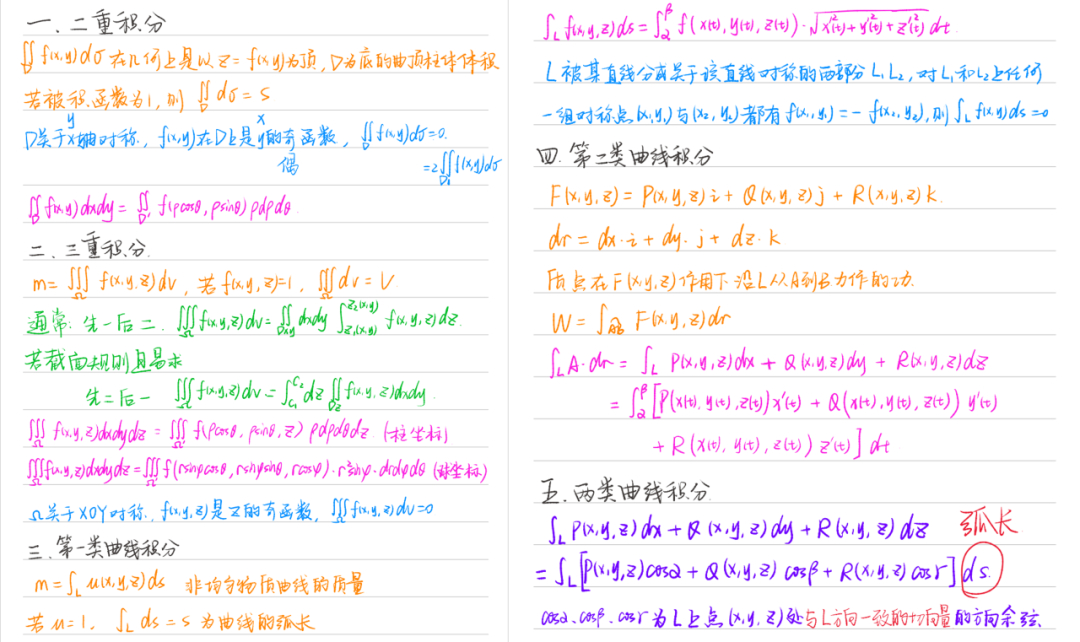 一. 二重积分
∬_D f(x,y)dσ 在几何上是以 z = f(x,y)为顶, D为底的曲顶柱体体积
若被积函数为1, 则 ∬_D dσ = S
y x
D关于x轴对称, f(x,y)在D上是y的奇函数, ∬_D f(x,y)dσ=0.
偶 =2∬_{D₁} f(x,y)dσ
∬_D f(x,y)dxdy = ∬_{D'} f(ρcosθ, ρsinθ) ρdρdθ
二. 三重积分.
m= ∭_Ω f(x,y,z)dv, 若 f(x,y,z)=1, ∭_Ω dv = V
通常: 先一后二. ∭_Ω f(x,y,z)dv = ∬_{Dxy} dxdy ∫_{z₁(x,y)}^{z₂(x,y)} f(x,y,z)dz
若截面规则且易求
先二后一 ∭_Ω f(x,y,z)dv = ∫_{C₁}^{C₂} dz ∬_{Dz} f(x,y,z)dxdy
∭_Ω f(x,y,z)dxdydz = ∭_Ω f(ρcosθ, ρsinθ, z) ρdρdθdz (柱坐标)
∭_Ω f(x,y,z)dxdydz = ∭_Ω f(rsinφcosθ, rsinφsinθ, rcosφ)·r²sinφ·drdφdθ (球坐标)
Ω关于XOY对称, f(x,y,z)是z的奇函数, ∭_Ω f(x,y,z)dv=0
三. 第一类曲线积分
m = ∫_L u(x,y,z)ds 非均匀物质曲线的质量
若 u=1. ∫_L ds = s 为曲线的弧长
∫_L f(x,y,z)ds = ∫_α^β f(x(t), y(t), z(t))·√(x'²(t)+y'²(t)+z'²(t)) dt
L被某直线分成关于该直线对称的两部分 L₁L₂, 对L₁和L₂上任何
一组对称点(x₁,y₁)与(x₂,y₂)都有f(x₁,y₁)=-f(x₂,y₂),则∫_L f(x,y)ds=0
四. 第二类曲线积分
F(x,y,z) = P(x,y,z)i + Q(x,y,z)j + R(x,y,z)k
dr = dx·i + dy·j + dz·k
质点在F(x,y,z)作用下沿L从A到B力作的功.
W = ∫_{AB} F(x,y,z)dr
∫_L A·dr = ∫_L P(x,y,z)dx + Q(x,y,z)dy + R(x,y,z)dz
= ∫_α^β [P(x(t),y(t),z(t))x'(t) + Q(x(t),y(t),z(t)) y'(t)
+ R(x(t),y(t),z(t)) z'(t)] dt
五. 两类曲线积分
∫_L P(x,y,z)dx + Q(x,y,z)dy + R(x,y,z)dz 弧长
= ∫_L [P(x,y,z)cosα + Q(x,y,z)cosβ + R(x,y,z)cosγ] ds
cosα. cosβ. cosγ 为L上点(x,y,z)处与L方向一致的切向量的方向余弦